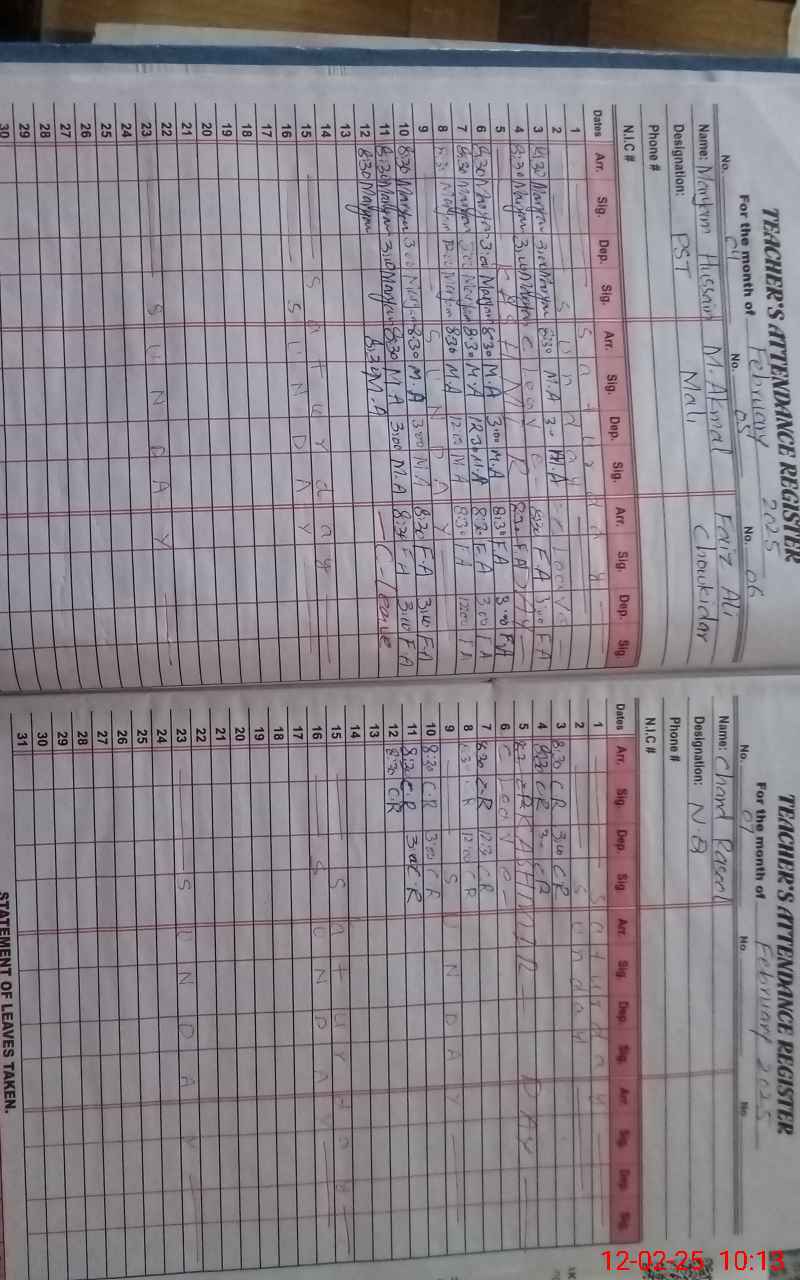 TEACHER'S ATTENDANCE REGISTER
For the month of February 2025
No. 04 No. 05 No. 06
Name: Maryam Hussain M. Akmal Faiz Ali
Designation: PST Mali Chowkidar
Phone #
N.I.C #
Dates Arr. Sig. Dep. Sig. Arr. Sig. Dep. Sig. Arr. Sig. Dep. Sig.
1 Saturday
2 Sunday
3 8:30 Maryam 3:00 Maryam 8:30 M.A 3:00 M.A 8:30 F.A 3:00 F.A
4 8:30 Maryam 3:00 Maryam C Leave 8:30 F.A
5 KASHMIR DAY
6 8:30 Maryam 3:00 Maryam 8:30 M.A 3:00 M.A 8:30 F.A 3:00 F.A
7 8:30 Maryam Maryam 8:30 M.A 12:30 M.A 8:30 F.A
8 8:30 Maryam Maryam 8:30 M.A M.A 8:30 F.A 12:00 F.A
9 SUNDAY
10 8:30 Maryam 3:00 Maryam 8:30 M.A 3:00 M.A 8:30 F.A 3:00 F.A
11 8:30 Maryam 3:00 Maryam 8:30 M.A 3:00 M.A 8:30 F.A 3:00 F.A
12 8:30 Maryam 8:30 M.A C-Leave
13
14
15 Saturday
16 SUNDAY
17
18
19
20
21
22
23 SUNDAY
24
25
26
27
28
29
30
TEACHER'S ATTENDANCE REGISTER
For the month of February 2025
No. 07 No. No.
Name: Chand Rasool
Designation: N.Q
Phone #
N.I.C #
Dates Arr. Sig. Dep. Sig. Arr. Sig. Dep. Sig. Arr. Sig. Dep. Sig.
1 Saturday
2 Sunday
3 8:30 C.R 3:00 C.R
4 8:30 C.R 3:00 C.R
5 KASHMIR DAY
6 C Leave
7 8:30 C.R 12:30 C.R
8 8:30 C.R 12:00 C.R
9 SUNDAY
10 8:30 C.R 3:00 C.R
11 8:30 C.R 3:00 C.R
12 8:30 C.R
13
14
15 Saturday
16 SUNDAY
17
18
19
20
21
22
23 SUNDAY
24
25
26
27
28
29
30
31
STATEMENT OF LEAVES TAKEN.
12-02-25 10:13